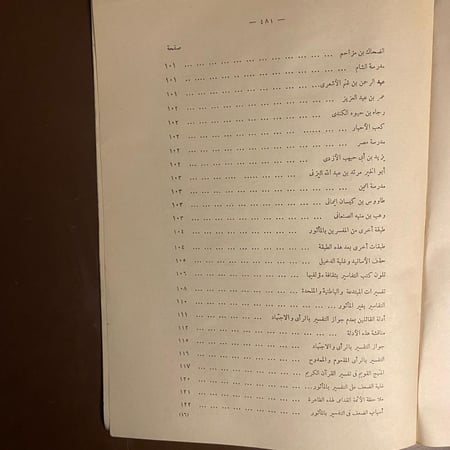 — ٤٨١ —
صفحة
الضحاك بن مزاحم ... ١٠١
مدرسة الشام ... ١٠١
عبد الرحمن بن غنم الأشعرى ... ١٠١
عمر بن عبد العزيز ... ١٠٢
رجاء بن حيوه الكندى ... ١٠٢
كعب الأحبار ... ١٠٢
مدرسة مصر ... ١٠٢
يزيد بن أبى حبيب الأزدى ... ١٠٢
أبو الخير مرثد بن عبد الله اليزنى ... ١٠٣
مدرسة اليمن ... ١٠٣
طاووس بن كيسان اليمانى ... ١٠٣
وهب بن منبه الصنعانى ... ١٠٣
طبقة أخرى من المفسرين بالمأثور ... ١٠٤
طبقات أخرى بعد هذه الطبقة ... ١٠٤
حذف الأسانيد وغلبة الدخيل ... ١٠٥
تلون كتب التفاسير بثقافة مؤلفيها ... ١٠٦
تفسيرات المبتدعة والباطنية والملحدة ... ١٠٨
التفاسير بغير المأثور ... ١١٠
أدلة القائلين بعدم جواز التفسير بالرأى والاجتهاد ... ١١١
مناقشة هذه الأدلة ... ١١٢
جواز التفسير بالرأى والاجتهاد ... ١١٥
التفسير بالرأى المذموم والممدوح ... ١١٦
المنهج القويم فى تفسير القرآن الكريم ... ١١٧
غلبة الضعف على التفسير بالمأثور ... ١٢١
ملاحظة الأئمة القدامى لهذه الظاهرة ... ١٢١
أسباب الضعف فى التفسير بالمأثور ... ١٢٢